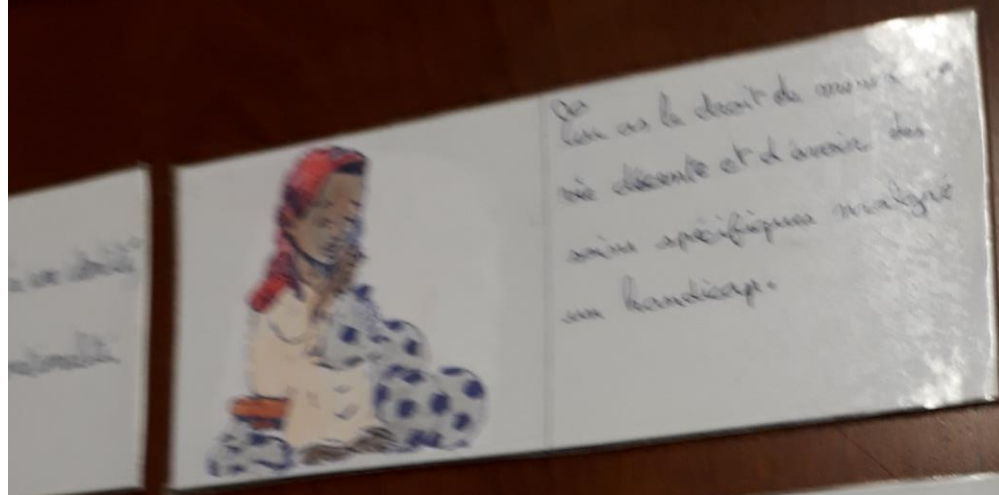 une identité
nationalité
Tu as le droit de mener une
vie décente et d'avoir des
soins spécifiques malgré
un handicap.